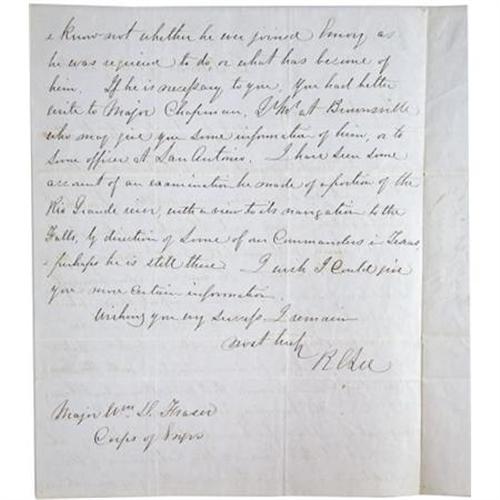 & know not whether he ever joined Emory as
he was required to do, or what has become of
him. If he is necessary to you, you had better
write to Major Chapman, at Brownsville
who may give you some information of him, or to
some officer at San Antonio. I have seen some
account of an examination he made of a portion of the
Rio Grande river, with a view to its navigation to the
Falls, by direction of some of our Commanders in Texas
& perhaps he is still there. I wish I could give
you more certain information.
Wishing you my success I remain
most
R E Lee
Major Wm D. Fraser
Corps of Engrs